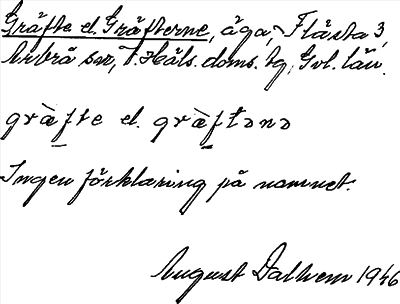 Gräfte el. Gräfterne, äga, Flästa 3,
Arbrå sn, N. Häls. doms. tg, Gvl. län.
græ̀fte el. græ̀ftənə
Ingen förklaring på namnet.
August Dalhem 1946